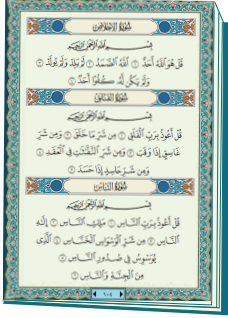 سُورَةُ الإِخْلَاصِ
بِسْمِ اللَّهِ الرَّحْمَٰنِ الرَّحِيمِ
قُلْ هُوَ اللَّهُ أَحَدٌ ١ اللَّهُ الصَّمَدُ ٢ لَمْ يَلِدْ وَلَمْ يُولَدْ ٣
وَلَمْ يَكُن لَّهُ كُفُوًا أَحَدٌ ٤
سُورَةُ الْفَلَقِ
بِسْمِ اللَّهِ الرَّحْمَٰنِ الرَّحِيمِ
قُلْ أَعُوذُ بِرَبِّ الْفَلَقِ ١ مِن شَرِّ مَا خَلَقَ ٢ وَمِن شَرِّ
غَاسِقٍ إِذَا وَقَبَ ٣ وَمِن شَرِّ النَّفَّاثَاتِ فِي الْعُقَدِ ٤
وَمِن شَرِّ حَاسِدٍ إِذَا حَسَدَ ٥
سُورَةُ النَّاسِ
بِسْمِ اللَّهِ الرَّحْمَٰنِ الرَّحِيمِ
قُلْ أَعُوذُ بِرَبِّ النَّاسِ ١ مَلِكِ النَّاسِ ٢ إِلَٰهِ
النَّاسِ ٣ مِن شَرِّ الْوَسْوَاسِ الْخَنَّاسِ ٤ الَّذِي
يُوَسْوِسُ فِي صُدُورِ النَّاسِ ٥
مِنَ الْجِنَّةِ وَالنَّاسِ ٦
٦٠٤